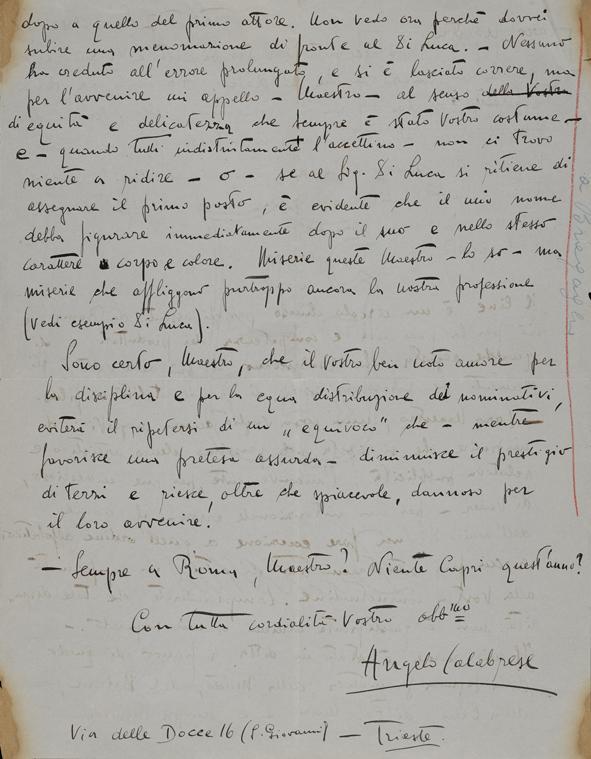 dopo a quello del primo attore. Non vedo ora perchè dovrei
subire una menomazione di fronte al Di Luca. – Nessuno
ha creduto all'errore prolungato, e si è lasciato correre, ma
per l'avvenire mi appello – Maestro – al senso della Vostra
di equità e delicatezza che sempre è stato Vostro costume –
e – quando tutti indistintamente l'accettino – non ci trovo
niente a ridire – o – se al Sig. Di Luca si ritiene di
assegnare il primo posto, è evidente che il mio nome
debba figurare immediatamente dopo il suo e nello stesso
carattere corpo e colore. Miserie queste Maestro – lo so – ma
miserie che affliggono purtroppo ancora la nostra professione
(vedi esempio Di Luca).
Sono certo, Maestro, che il Vostro ben noto amore per
la disciplina e per la equa distribuzione dei nominativi,
eviterà il ripetersi di un „equivoco" che – mentre
favorisce una pretesa assurda – diminuisce il prestigio
di terzi e riesce, oltre che spiacevole, dannoso per
il loro avvenire.
– Sempre a Roma, Maestro? Niente Capri quest'anno?
Con tutta cordialità Vostro obb.mo
Angelo Calabrese
Via delle Docce 16 (S. Giovanni) – Trieste.